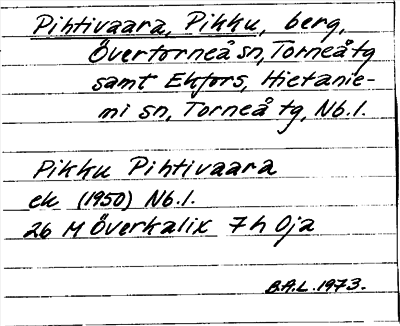 Pihtivaara, Pikku, berg,
Övertorneå sn, Torneå tg
samt Ekfors, Hietanie-
mi sn, Torneå tg, Nb.l.
Pikku Pihtivaara
ek (1950) Nb.l.
26 M Överkalix 7h Oja
B.A.L. 1973.